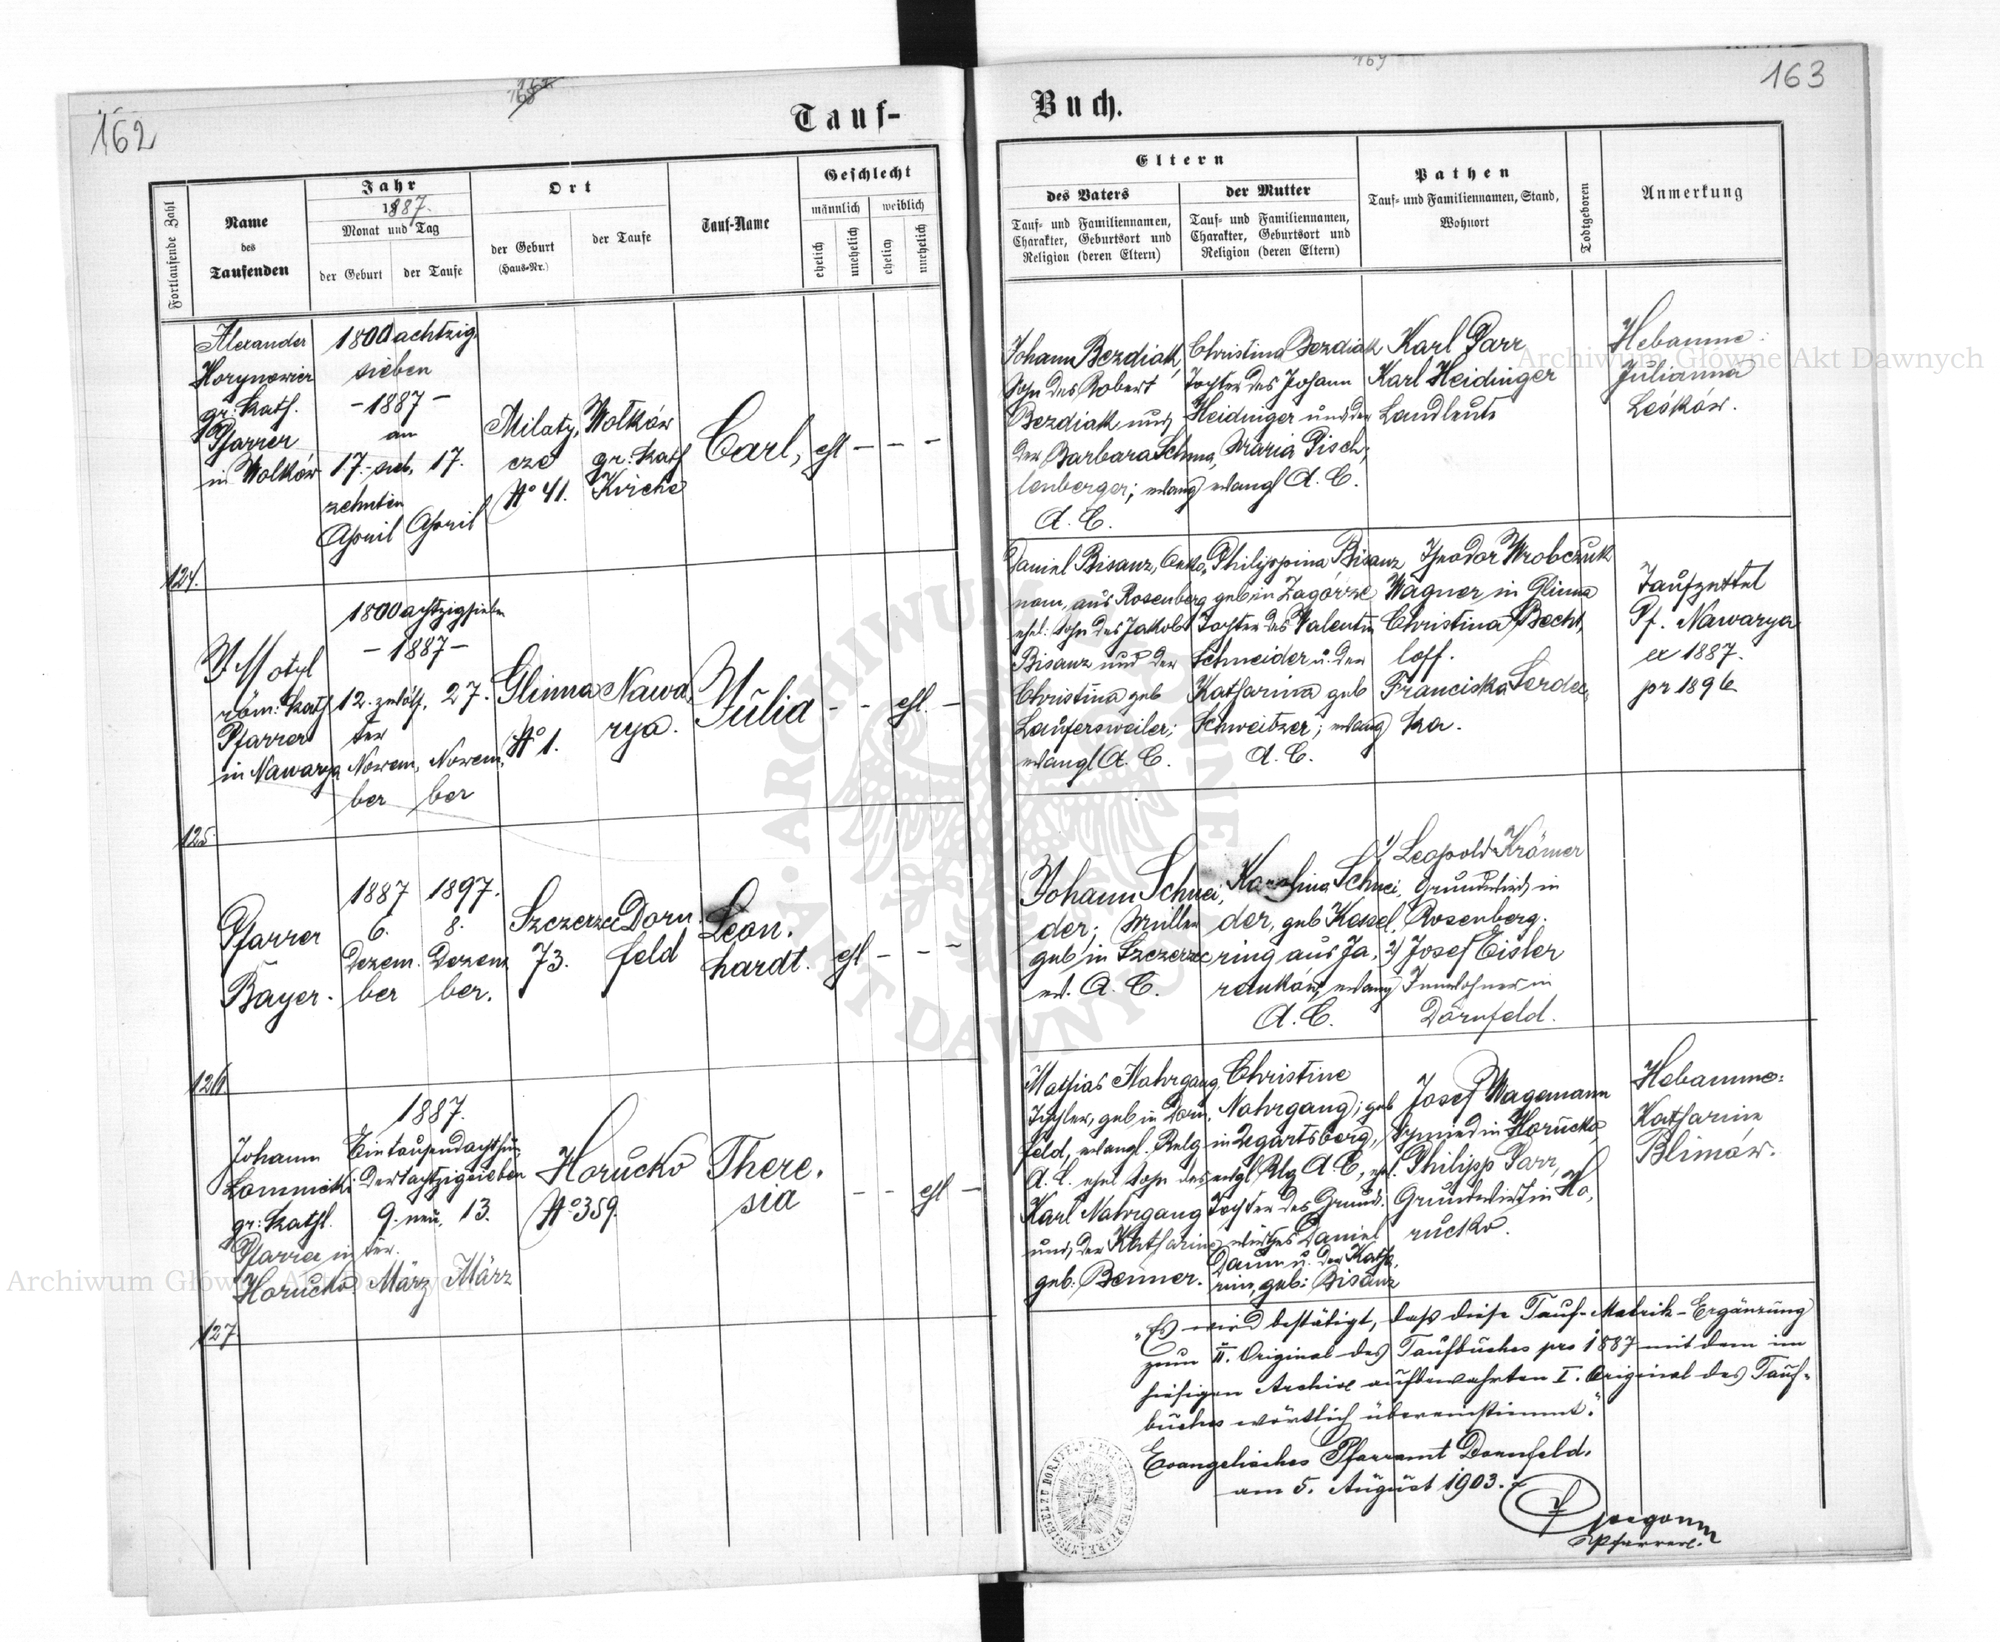 162
163
169
Tauf-
Buch.
Fortlaufende Zahl
Name
des
Taufenden
Jahr
1887.
Monat und Tag
der Geburt
der Taufe
Ort
der Geburt
(Haus-Nr.)
der Taufe
Tauf-Name
Geschlecht
männlich
weiblich
ehelich
unehelich
ehelich
unehelich
Eltern
des Vaters
Tauf- und Familiennamen,
Charakter, Geburtsort und
Religion (deren Eltern)
der Mutter
Tauf- und Familiennamen,
Charakter, Geburtsort und
Religion (deren Eltern)
Pathen
Tauf- und Familiennamen, Stand,
Wohnort
Todtgeboren
Anmerkung
124.
Alexander
Horynowicz
gr: kath.
Pfarrer
in Wolków
1800 achtzig,
sieben
- 1887 -
am
17. sieb,
zehnten
April
17.
April
Milaty,
cze
No 41.
Wolków
gr: kath
Kirche
Carl,
ehl - - -
Johann Bezdiak,
Sohn des Robert
Bezdiak und
der Barbara Schma,
lenberger; evang
A. C.
Christina Bezdiak
Tochter des Johann
Heidinger und der
Maria Pisch,
evangl A. C.
Karl Parr
Karl Heidinger
Landleute
Hebamme:
Julianna
Leśków.
125.
Motyl
röm: kath
Pfarrer
in Nawarya
1800 achtzigsieben
- 1887 -
12. zwölf,
ter
Novem,
ber
27.
Novem,
ber
Glinna
No 1.
Nawa,
rya.
Julia
- - ehl. -
Daniel Bisanz, Oeko,
nom, aus Rosenberg
ehel: Sohn des Jakob
Bisanz und der
Christina geb
Laufersweiler;
evangl A. C.
Philippina Bisanz
geb in Zagórze
Tochter des Valentin
Schneider u. der
Katharina geb
Schweitzer; evang
A. C.
Theodor Wrobczuk
Wagner in Glinna
Christina Becht,
loff.
Franciska Serdec,
ka.
Taufzettel
Pf. Nawarya
ex 1887.
pr 1896
126.
Pfarrer
Bayer.
1887
6.
Dezem.
ber
1897.
8.
Dezem
ber.
Szczerzec
73.
Dorn.
feld
Leon.
hardt.
ehl - - -
Johann Schnei,
der; Müller
geb in Szczerzec
ev. A. C.
Karolina Schnei,
der, geb Kessel,
ring aus Ja,
reuków, evang
A. C.
1) Leopold Krämer
Grundwirth in
Rosenberg.
2) Josef Eisler
Inwohner in
Dornfeld.
127.
Johann
Lomnicki
gr: kathl.
Pfarrer in
Horucko
1887.
Eintausendachthun,
dertachtzigsieben
9. neun,
ter.
März
13.
März
Horucko
No 359.
There,
sia
- - ehl -
Mathias Nahrgang,
Tischler, geb in Dorn,
feld, evangl. Relg
A. C. ehel Sohn des
Karl Nahrgang
und der Katharine
geb: Benner.
Christine
Nahrgang; geb
in Degartsberg,
evgl Rlg A. C, ehl.
Tochter des Grund,
wirthes Daniel
Daum u. der Katha,
rine, geb: Bisanz
Josef Wagemann
Schmied in Horucko,
Philipp Parr,
Grundwirth in Ho,
rucko.
Hebamme:
Katharine
Blimów.
„Es wird bestätigt, dass diese Tauf-Matrik-Ergänzung
zum II. Original des Taufbuches pro 1887 mit dem im
hiesigen Archive aufbewahrten I. Original des Tauf-
buches wörtlich übereinstimmt."
Evangelisches Pfarramt Dornfeld.
am 5. August 1903.
Pfarrer.
Archiwum Główne Akt Dawnych
Archiwum Główne Akt Dawnych
ARCHIWUM GŁÓWNE AKT DAWNYCH